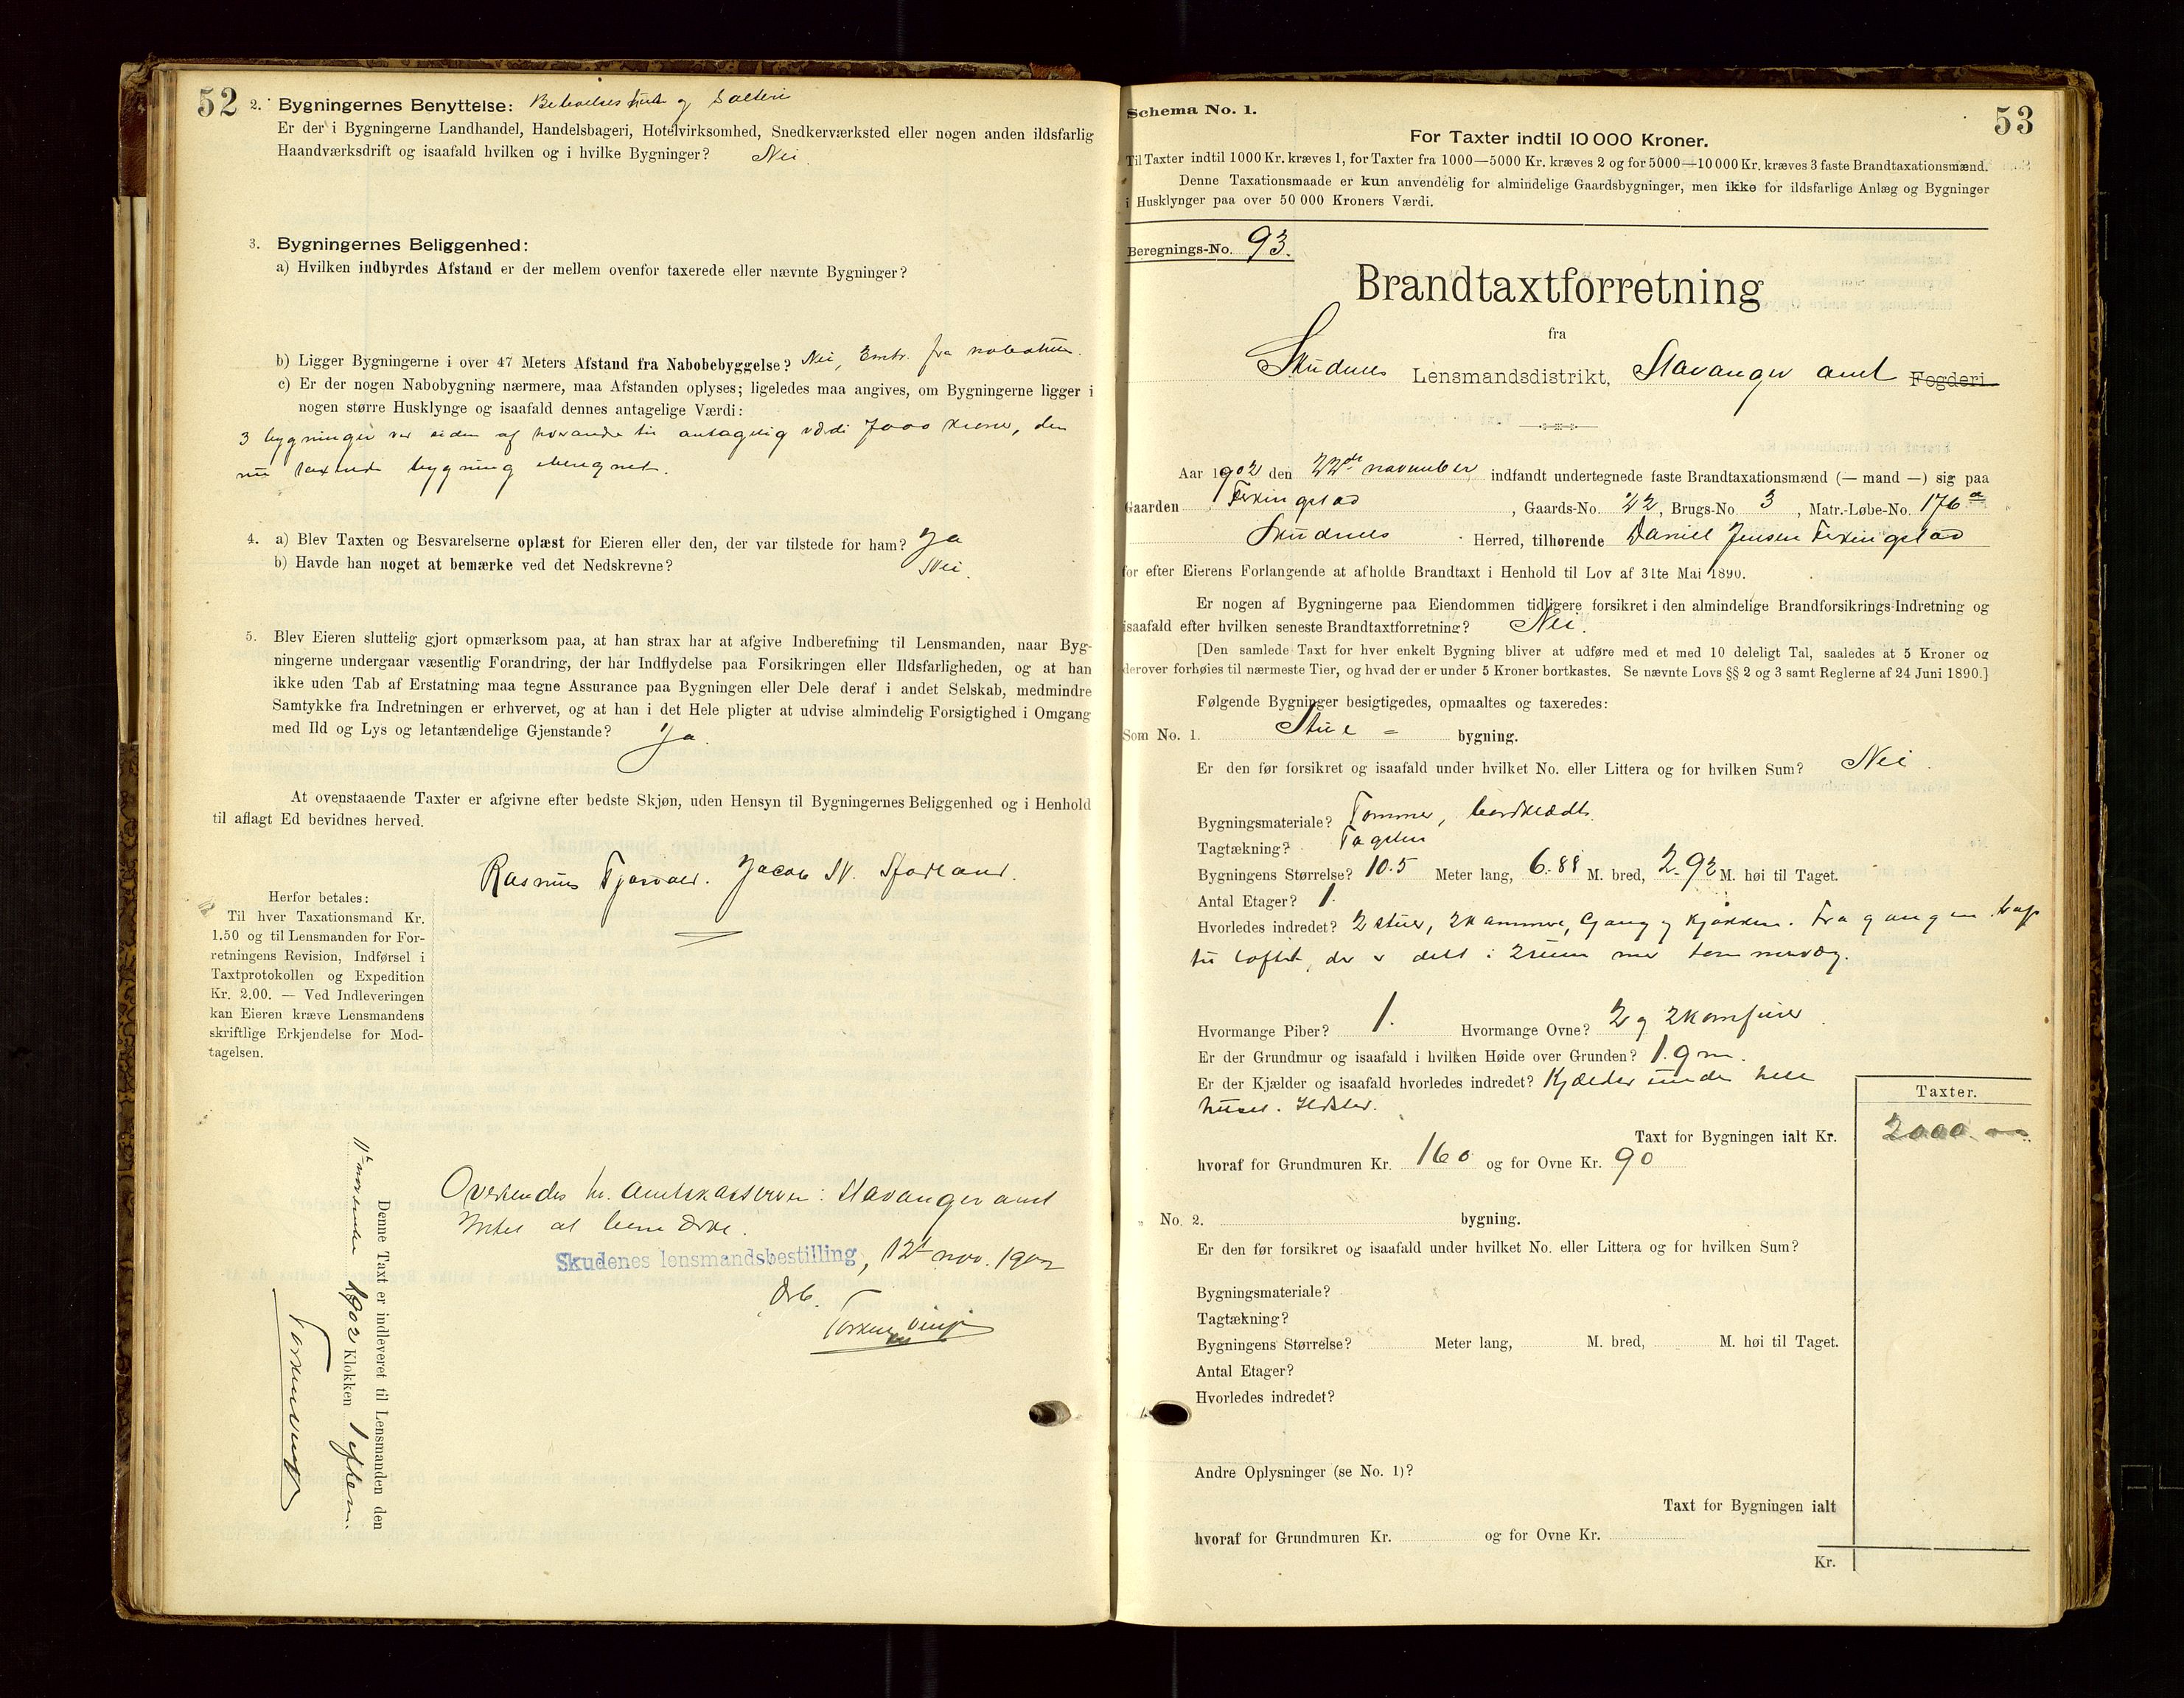 52
2. Bygningernes Benyttelse: og Salteri
Er der i Bygningerne Landhandel, Handelsbageri, Hotelvirksomhed, Snedkerværksted eller nogen anden ildsfarlig
Haandværksdrift og isaafald hvilken og i hvilke Bygninger? Nei.
3. Bygningernes Beliggenhed:
a) Hvilken indbyrdes Afstand er der mellem ovenfor taxerede eller nævnte Bygninger?
b) Ligger Bygningerne i over 47 Meters Afstand fra Nabobebyggelse? Nei, fra
c) Er der nogen Nabobygning nærmere, maa Afstanden oplyses; ligeledes maa angives, om Bygningerne ligger i
nogen større Husklynge og isaafald dennes antagelige Værdi:
3 bygninger ved siden af hverandre til antagelig værdi 7000 kroner, den
nu bygning
4. a) Blev Taxten og Besvarelserne oplæst for Eieren eller den, der var tilstede for ham? Ja
b) Havde han noget at bemærke ved det Nedskrevne? Nei.
5. Blev Eieren sluttelig gjort opmærksom paa, at han strax har at afgive Indberetning til Lensmanden, naar Byg-
ningerne undergaar væsentlig Forandring, der har Indflydelse paa Forsikringen eller Ildsfarligheden, og at han
ikke uden Tab af Erstatning maa tegne Assurance paa Bygningen eller Dele deraf i andet Selskab, medmindre
Samtykke fra Indretningen er erhvervet, og at han i det Hele pligter at udvise almindelig Forsigtighed i Omgang
med Ild og Lys og letantændelige Gjenstande? Ja.
At ovenstaaende Taxter er afgivne efter bedste Skjøn, uden Hensyn til Bygningernes Beliggenhed og i Henhold
til aflagt Ed bevidnes herved.
Rasmus Jacob
Herfor betales:
Til hver Taxationsmand Kr.
1.50 og til Lensmanden for For-
retningens Revision, Indførsel i
Taxtprotokollen og Expedition
Kr. 2.00. — Ved Indleveringen
kan Eieren kræve Lensmandens
skriftlige Erkjendelse for Mod-
tagelsen.
Denne Taxt er indleveret til Lensmanden den
11te november 1902 Klokken 1 eftm.
Oversendes hr. Amtskasserer i Stavanger amt
Intet at bemærke.
Skudenes lensmandsbestilling, 12te nov. 1902
53
Schema No. 1.
For Taxter indtil 10 000 Kroner.
Til Taxter indtil 1000 Kr. kræves 1, for Taxter fra 1000—5000 Kr. kræves 2 og for 5000—10 000 Kr. kræves 3 faste Brandtaxationsmænd.
Denne Taxationsmaade er kun anvendelig for almindelige Gaardsbygninger, men ikke for ildsfarlige Anlæg og Bygninger
i Husklynger paa over 50 000 Kroners Værdi.
Beregnings-No. 93.
Brandtaxtforretning
fra
Skudenes Lensmandsdistrikt, Stavanger amt Fogderi
Aar 1902 den 22de november indfandt undertegnede faste Brandtaxationsmænd (— mand —) sig paa
Gaarden Ferkingstad, Gaards-No. 22, Brugs-No. 3, Matr.-Løbe-No. 176 a
Skudenes Herred, tilhørende Daniel Jensen Ferkingstad
for efter Eierens Forlangende at afholde Brandtaxt i Henhold til Lov af 31te Mai 1890.
Er nogen af Bygningerne paa Eiendommen tidligere forsikret i den almindelige Brandforsikrings-Indretning og
isaafald efter hvilken seneste Brandtaxtforretning? Nei.
[Den samlede Taxt for hver enkelt Bygning bliver at udføre med et med 10 deleligt Tal, saaledes at 5 Kroner og
derover forhøies til nærmeste Tier, og hvad der er under 5 Kroner bortkastes. Se nævnte Lovs §§ 2 og 3 samt Reglerne af 24 Juni 1890.]
Følgende Bygninger besigtigedes, opmaaltes og taxeredes:
Som No. 1. Stue = bygning.
Er den før forsikret og isaafald under hvilket No. eller Littera og for hvilken Sum? Nei.
Bygningsmateriale? Tømmer, bordklædt.
Tagtækning? Tagsten
Bygningens Størrelse? 10.5 Meter lang, 6.88 M. bred, 2.92 M. høi til Taget.
Antal Etager? 1.
Hvorledes indredet? 2 stuer, 2 kammere, Gang og kjøkken. Fra gangen trap
til loftet, der er delt i 2 rum med tømmervæg.
Hvormange Piber? 1. Hvormange Ovne? 2 og 2 komfurer.
Er der Grundmur og isaafald i hvilken Høide over Grunden? 1.9 m.
Er der Kjælder og isaafald hvorledes indredet? Kjælder under hele
huset. Ildsted.
Taxter.
Taxt for Bygningen ialt Kr. 2000.
hvoraf for Grundmuren Kr. 160 og for Ovne Kr. 90
" No. 2. bygning.
Er den før forsikret og isaafald under hvilket No. eller Littera og for hvilken Sum?
Bygningsmateriale?
Tagtækning?
Bygningens Størrelse? Meter lang, M. bred, M. høi til Taget.
Antal Etager?
Hvorledes indredet?
Andre Oplysninger (se No. 1)?
Taxt for Bygningen ialt
hvoraf for Grundmuren Kr. og for Ovne Kr.
Kr.